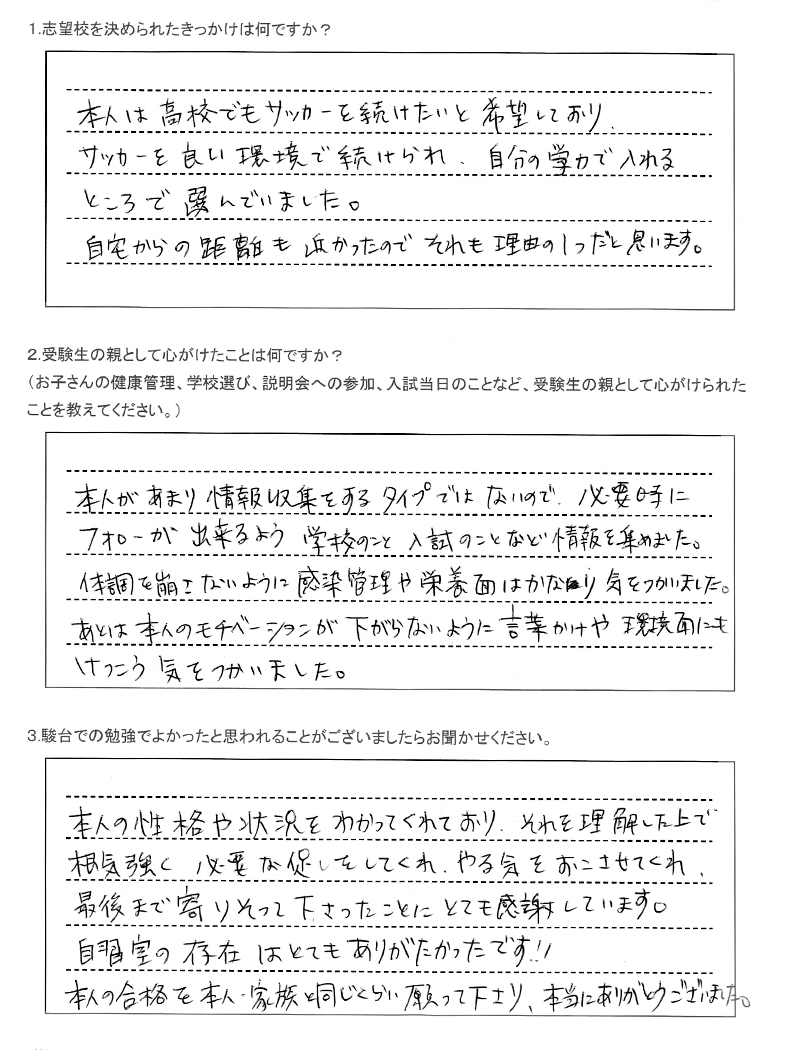 1.志望校を決められたきっかけは何ですか？
本人は高校でもサッカーを続けたいと希望しており、
サッカーを良い環境で続けられ、自分の学力で入れる
ところで選んでいました。
自宅からの距離も近かったのでそれも理由の1つだと思います。
2.受験生の親として心がけたことは何ですか？
（お子さんの健康管理、学校選び、説明会への参加、入試当日のことなど、受験生の親として心がけられた
ことを教えてください。）
本人があまり情報収集をするタイプではないので、必要時に
フォローが出来るよう学校のこと入試のことなど情報を集めました。
体調を崩さないように感染管理や栄養面はかなり気をつかいました。
あとは本人のモチベーションが下がらないように言葉かけや環境面にも
けっこう気をつかいました。
3.駿台での勉強でよかったと思われることがございましたらお聞かせください。
本人の性格や状況をわかってくれており、それを理解した上で
根気強く必要な促しをしてくれ、やる気をおこさせてくれ、
最後まで寄りそって下さったことにとても感謝しています。
自習室の存在はとてもありがたかったです!!
本人の合格を本人・家族と同じくらい願って下さり、本当にありがとうございました。